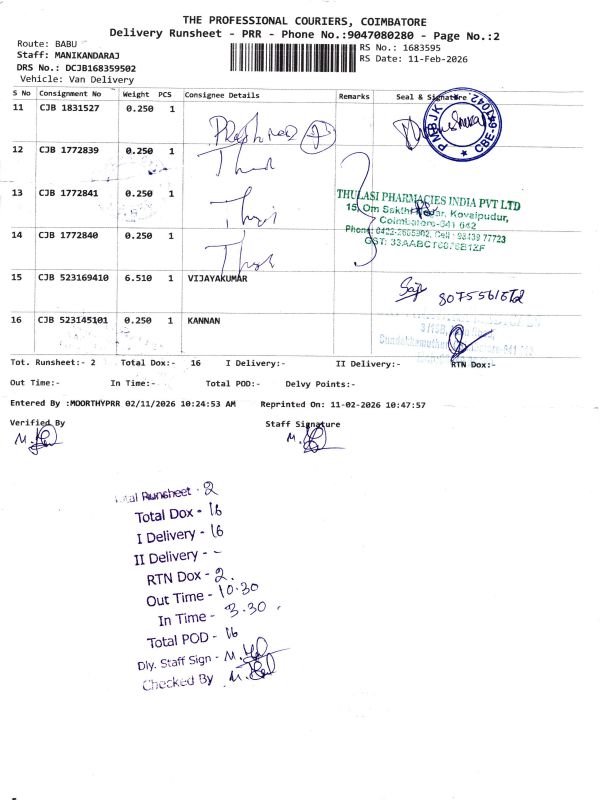 THE PROFESSIONAL COURIERS, COIMBATORE
Delivery Runsheet - PRR - Phone No.:9047080280 - Page No.:2
Route: BABU
Staff: MANIKANDARAJ
DRS No.: DCJB168359502
Vehicle: Van Delivery
RS No.: 1683595
RS Date: 11-Feb-2026
S No Consignment No Weight PCS Consignee Details Remarks Seal & Signature
11 CJB 1831527 0.250 1
PMBJK CBE-641042
12 CJB 1772839 0.250 1
13 CJB 1772841 0.250 1
THULASI PHARMACIES INDIA PVT LTD
15, Om Sakthi Nagar, Kovaipudur,
Coimbatore-641 042
Phone: 0422-2605902, Cell: 93439 77723
GST:
14 CJB 1772840 0.250 1
15 CJB 523169410 6.510 1 VIJAYAKUMAR
16 CJB 523145101 0.250 1 KANNAN
Tot. Runsheet:- 2 Total Dox:- 16 I Delivery:- II Delivery:- RTN Dox:-
Out Time:- In Time:- Total POD:- Delvy Points:-
Entered By :MOORTHYPRR 02/11/2026 10:24:53 AM Reprinted On: 11-02-2026 10:47:57
Verified By Staff Signature
Total Runsheet - 2
Total Dox - 16
I Delivery - 16
II Delivery - -
RTN Dox - 2.
Out Time - 10.30
In Time - 3.30
Total POD - 16
Dly. Staff Sign -
Checked By